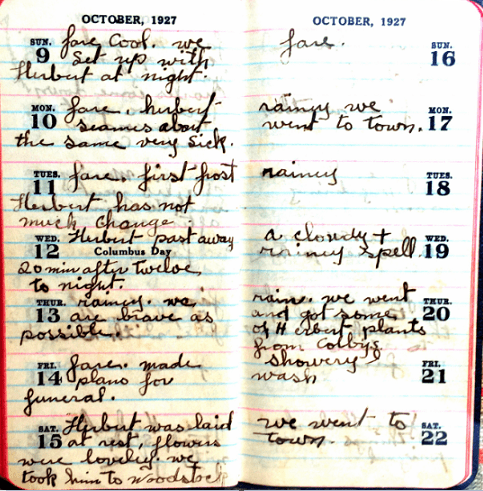 OCTOBER, 1927
SUN.
9
fare cool. we
set up with
Herbert at night.
MON.
10
fare. herbert
seames about
the same very sick.
TUES.
11
fare. first frost
Herbert has not
much change.
WED.
12
Herbert past away
Columbus Day
20 min after twelve
to night.
THUR.
13
rainey. we
are brave as
possible.
FRI.
14
fare. made
plans for
funeral.
SAT.
15
Herbert was laid
at rest, flowers
were lovely. we
took him to Woodstock
OCTOBER, 1927
SUN.
16
fare.
MON.
17
rainey we
went to town.
TUES.
18
rainey
WED.
19
a cloudy +
rainey spell.
THUR.
20
rain. we went
and got some
of Herbert plants
from Colbys
FRI.
21
showery
wash
SAT.
22
we went to
town.